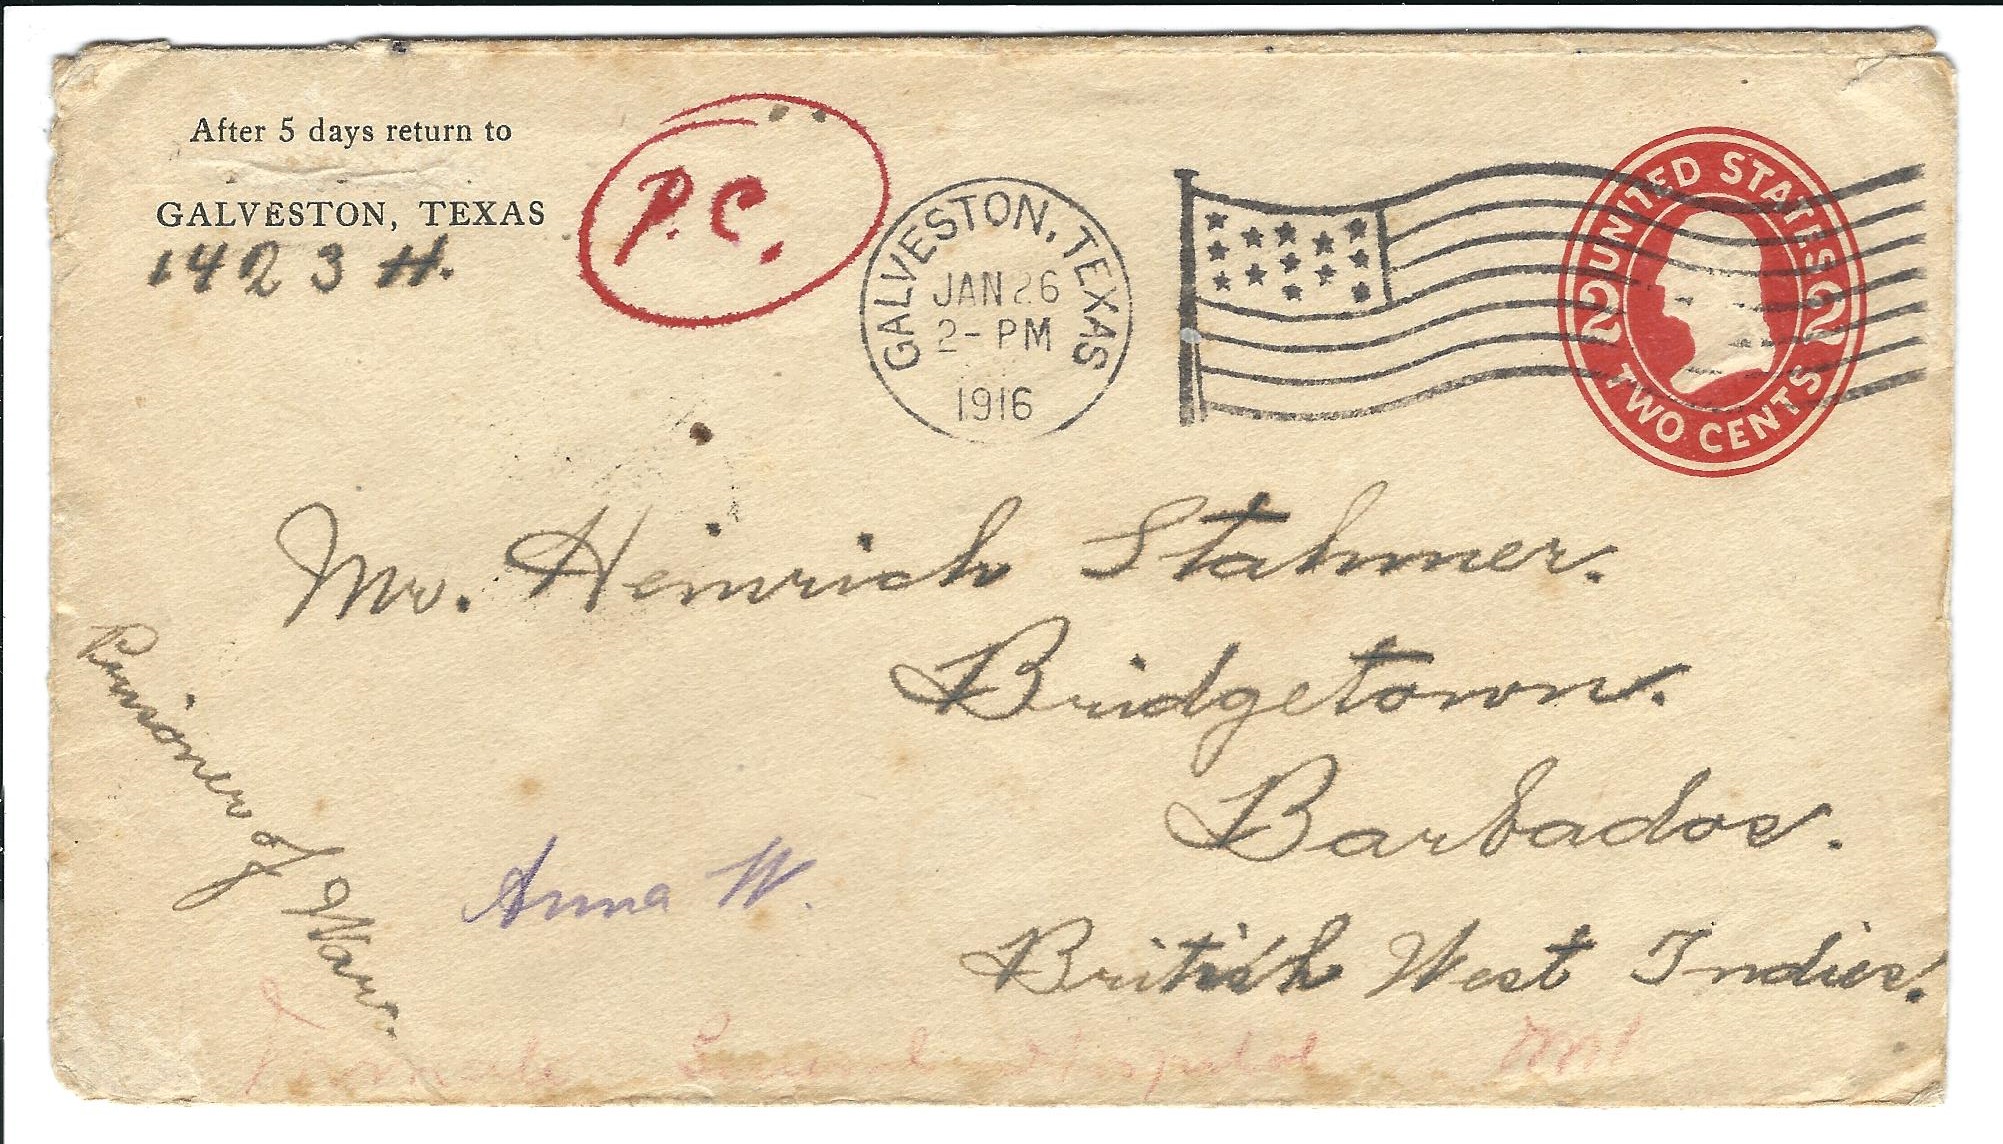 After 5 days return to
GALVESTON, TEXAS
1423 H.
P.C.
GALVESTON, TEXAS
JAN 26
2- PM
1916
UNITED STATES
2 2
TWO CENTS
Mr. Heinrich Stahmer.
Bridgetown.
Barbados.
British West Indies.
Prisoner of War.
Anna W.
General Hospital